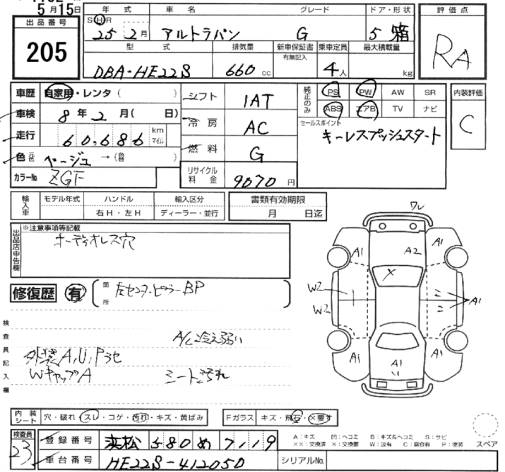 5月15日
出品番号
205
年式 車名 グレード ドア・形状
S・H・R
25年2月 アルトラパン G 5 箱
型式 排気量 新車保証書 乗車定員 最大積載量
有無記入
DBA-HE22S 660cc 4人 kg
評価点
RA
車歴 自家用・レンタ ( )
車検 8年2月( 日)
走行 60,686 km マイル
色 ベージュ →( )
カラーNo ZGF
シフト IAT
冷房 AC
燃料 G
リサイクル料金 9070円
純正のみ PS PW AW SR
ABS エアB TV ナビ
セールスポイント
キーレスプッシュスタート
内装評価
C
輸入車 モデル年式 ハンドル 輸入区分
年 右H・左H ディーラー・並行
書類有効期限
月 日迄
出品店申告欄
※注意事項等記載
オーディオレス穴
修復歴 有 箇所 左センターピラーBP
検査員記入欄
A/C冷え弱い
外装A,U,Pうせ
WキャップA シート汚れ
ワレ
A1 A2 A1
X
W2
W2
A1
A1 A1
A1
内装シート 穴・破れ・スレ・コゲ・汚れ・キズ・黄ばみ
Fガラス キズ・飛石・×要す
スペア
検査員
23
登録番号 浜松 580 め 7119
車台番号 HE22S-412050
A:キズ U:凹ヘコミ B:キズ&ヘコミ S:サビ
XX:交換済 X:交換要 W:波 C:腐食 P:塗装
シリアルNo